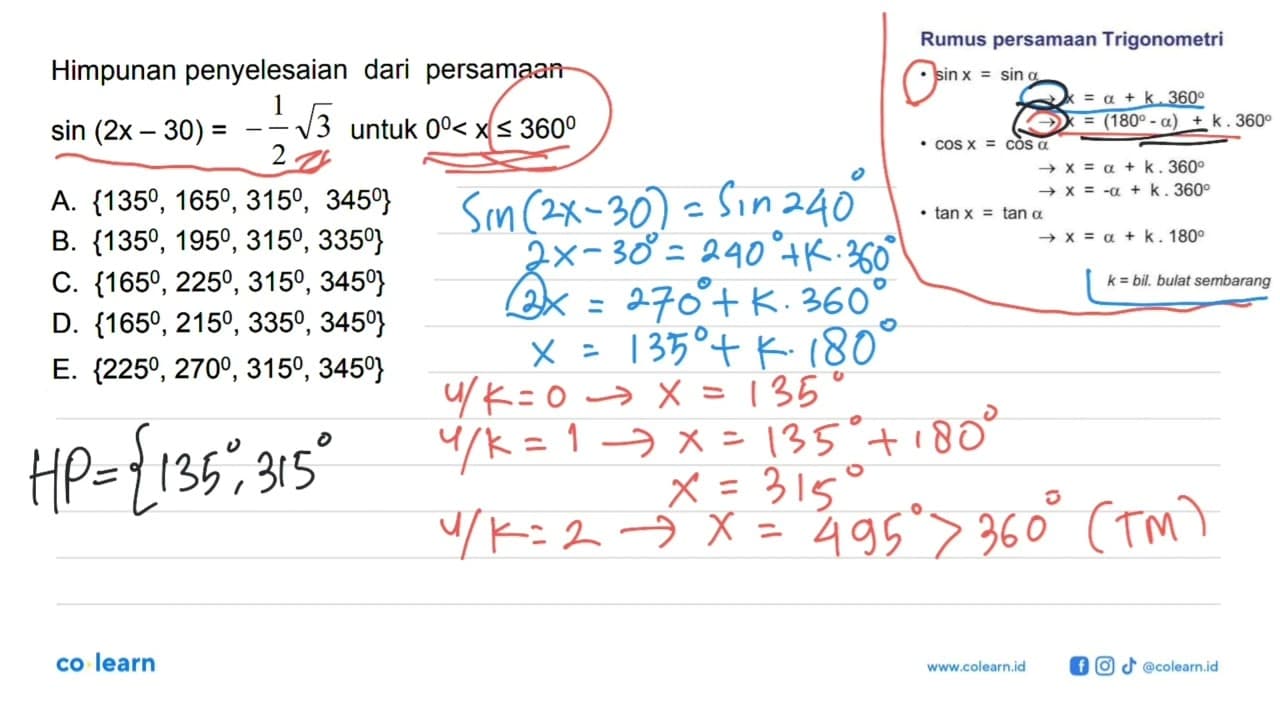 Himpunan penyelesaian dari persamaan
sin (2x – 30) = –1/2 √3 untuk 0⁰< x ≤ 360⁰
A. {135⁰, 165⁰, 315⁰, 345⁰}
B. {135⁰, 195⁰, 315⁰, 335⁰}
C. {165⁰, 225⁰, 315⁰, 345⁰}
D. {165⁰, 215⁰, 335⁰, 345⁰}
E. {225⁰, 270⁰, 315⁰, 345⁰}
HP = {135°, 315°
Rumus persamaan Trigonometri
• sin x = sin α
→ x = α + k . 360⁰
→ x = (180⁰ - α) + k . 360⁰
• cos x = cos α
→ x = α + k . 360⁰
→ x = -α + k . 360⁰
• tan x = tan α
→ x = α + k . 180⁰
k = bil. bulat sembarang
Sin(2x-30) = Sin 240°
2x - 30° = 240° + K. 360°
2x = 270° + K. 360°
x = 135° + K. 180°
u/K = 0 → x = 135°
u/k = 1 → x = 135° + 180°
x = 315°
u/K = 2 → x = 495° > 360° (TM)
co learn
www.colearn.id
@colearn.id